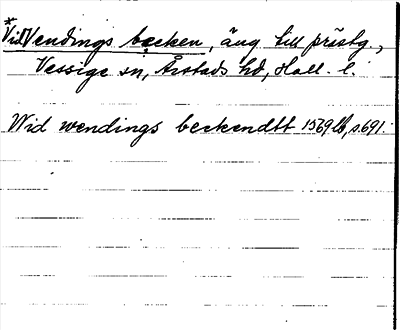 *Vid Vendings bæcken, äng till prästg.,
Vessige sn, Årstads hd, Hall. l.
Wid wendings beckendtt 1569 lb, s. 691.